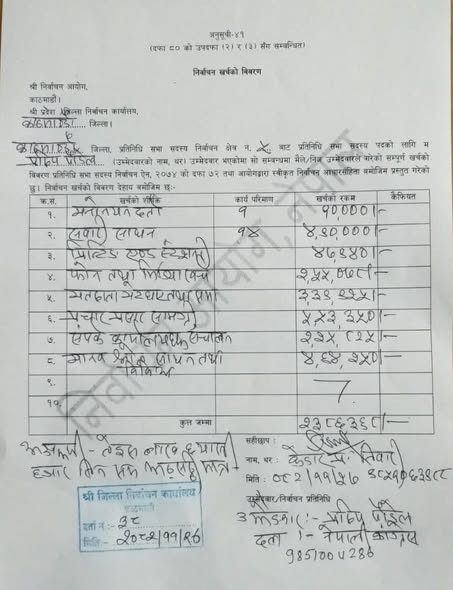 अनुसूची-४१
(दफा ८० को उपदफा (२) र (३) सँग सम्बन्धित)
निर्वाचन खर्चको विवरण
श्री निर्वाचन आयोग,
काठमाडौं।
श्री प्रदेश/जिल्ला निर्वाचन कार्यालय,
काठमाडौं..... जिल्ला।
काठमाडौं जिल्ला, प्रतिनिधि सभा सदस्य निर्वाचन क्षेत्र नं. ५ बाट प्रतिनिधि सभा सदस्य पदको लागि म
प्रदिप पौडेल (उम्मेदवारको नाम, थर) उम्मेदवार भएकोमा सो सम्बन्धमा मैले/निज उम्मेदवारले गरेको सम्पूर्ण खर्चको
विवरण प्रतिनिधि सभा सदस्य निर्वाचन ऐन, २०७४ को दफा ७२ तथा आयोगद्वारा स्वीकृत निर्वाचन आचारसंहिता बमोजिम प्रस्तुत गरेको
छु। निर्वाचन खर्चको विवरण देहाय बमोजिम छः-
क्र.सं. खर्चको शीर्षक कार्य परिमाण खर्चको रकम कैफियत
१. मनोनयन दर्ता १ १०,०००।-
२. सवारी साधन १४ ४,८०,०००।-
३. प्रिन्टिङ एण्ड स्टेशनरी
४. फोन तथा मिडिया खर्च
५. मतदाता
६. प्रचार प्रसार सामग्री ५,५३,३५०।-
७. सम्पर्क कार्यालय संचालन
८. मानव श्रोत साधन तथा विविध
९.
१०.
कुल जम्मा २३८६३६८।-
अक्षरूपी - तेइस लाख छयासी
हजार तिन सय अठसठ्ठी मात्र।
सहीछाप :
नाम, थर : केदार प्र. तिवारी
मिति : ०८२/११/२७
उम्मेदवार/निर्वाचन प्रतिनिधि
उम्मेदवार :- प्रदिप पौडेल
दल :- नेपाली काँग्रेस
9851004286
श्री जिल्ला निर्वाचन कार्यालय
काठमाडौं
दर्ता नं :- ३८
मिति :- २०८२/११/२७
निर्वाचन आयोग, नेपाल